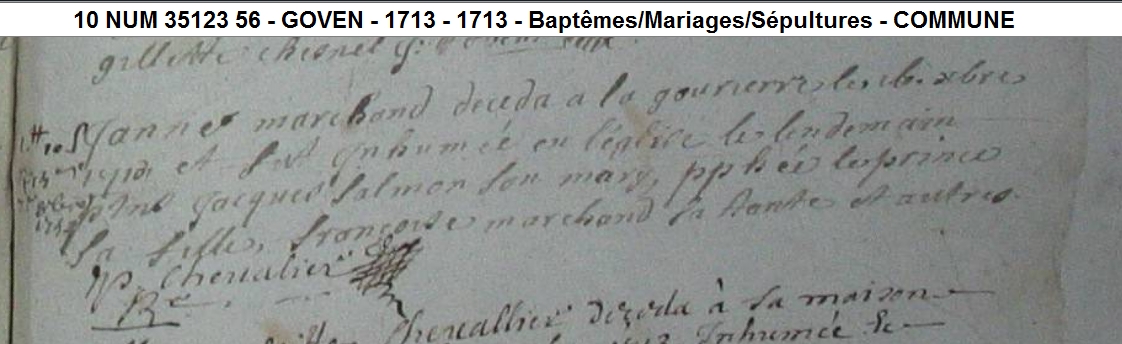 10 NUM 35123 56 - GOVEN - 1713 - 1713 - Baptêmes/Mariages/Sépultures - COMMUNE
gillette chesnel
Janne marchand deceda a la gourierre le xbre
1713 et fut Inhumée en l'église le lendemain
pnts Jacques Salmon son mary, leprince
sa fille, françoise marchand sa tante et autres.
P. Chevalier
Re
Chevallier deceda à sa maison
Inhumée